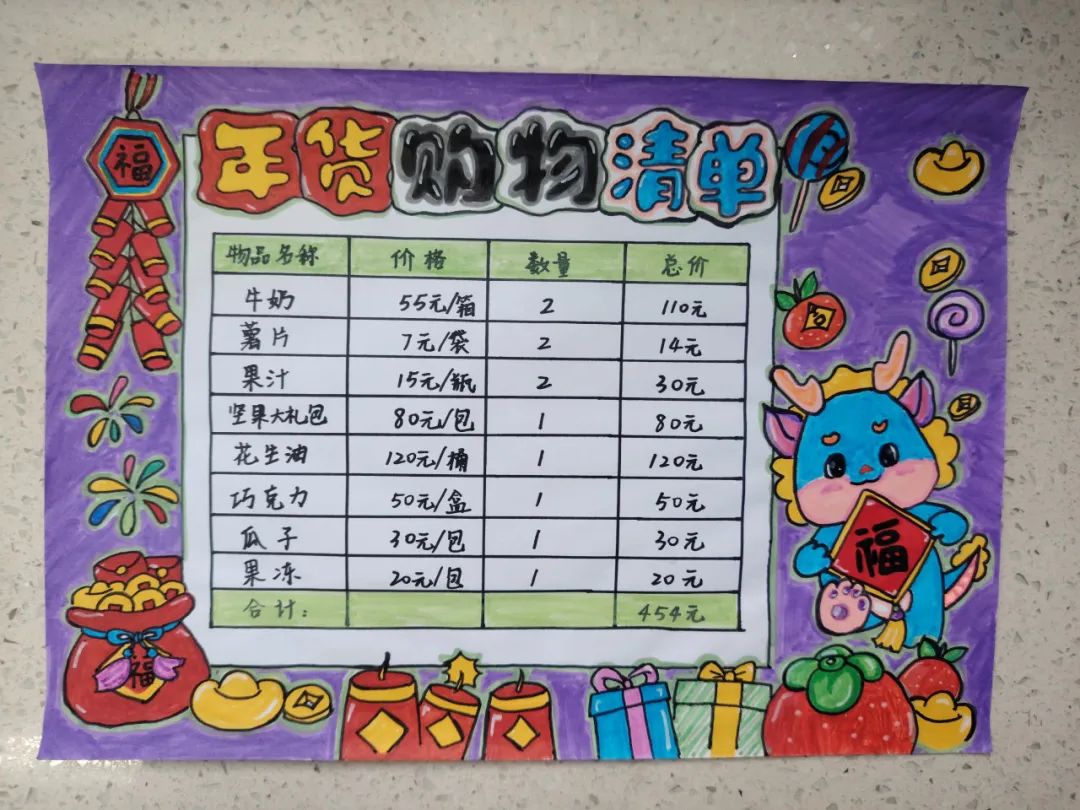 年货购物清单
福
物品名称 价格 数量 总价
牛奶 55元/箱 2 110元
薯片 7元/袋 2 14元
果汁 15元/瓶 2 30元
坚果大礼包 80元/包 1 80元
花生油 120元/桶 1 120元
巧克力 50元/盒 1 50元
瓜子 30元/包 1 30元
果冻 20元/包 1 20元
合计: 454元
福
福